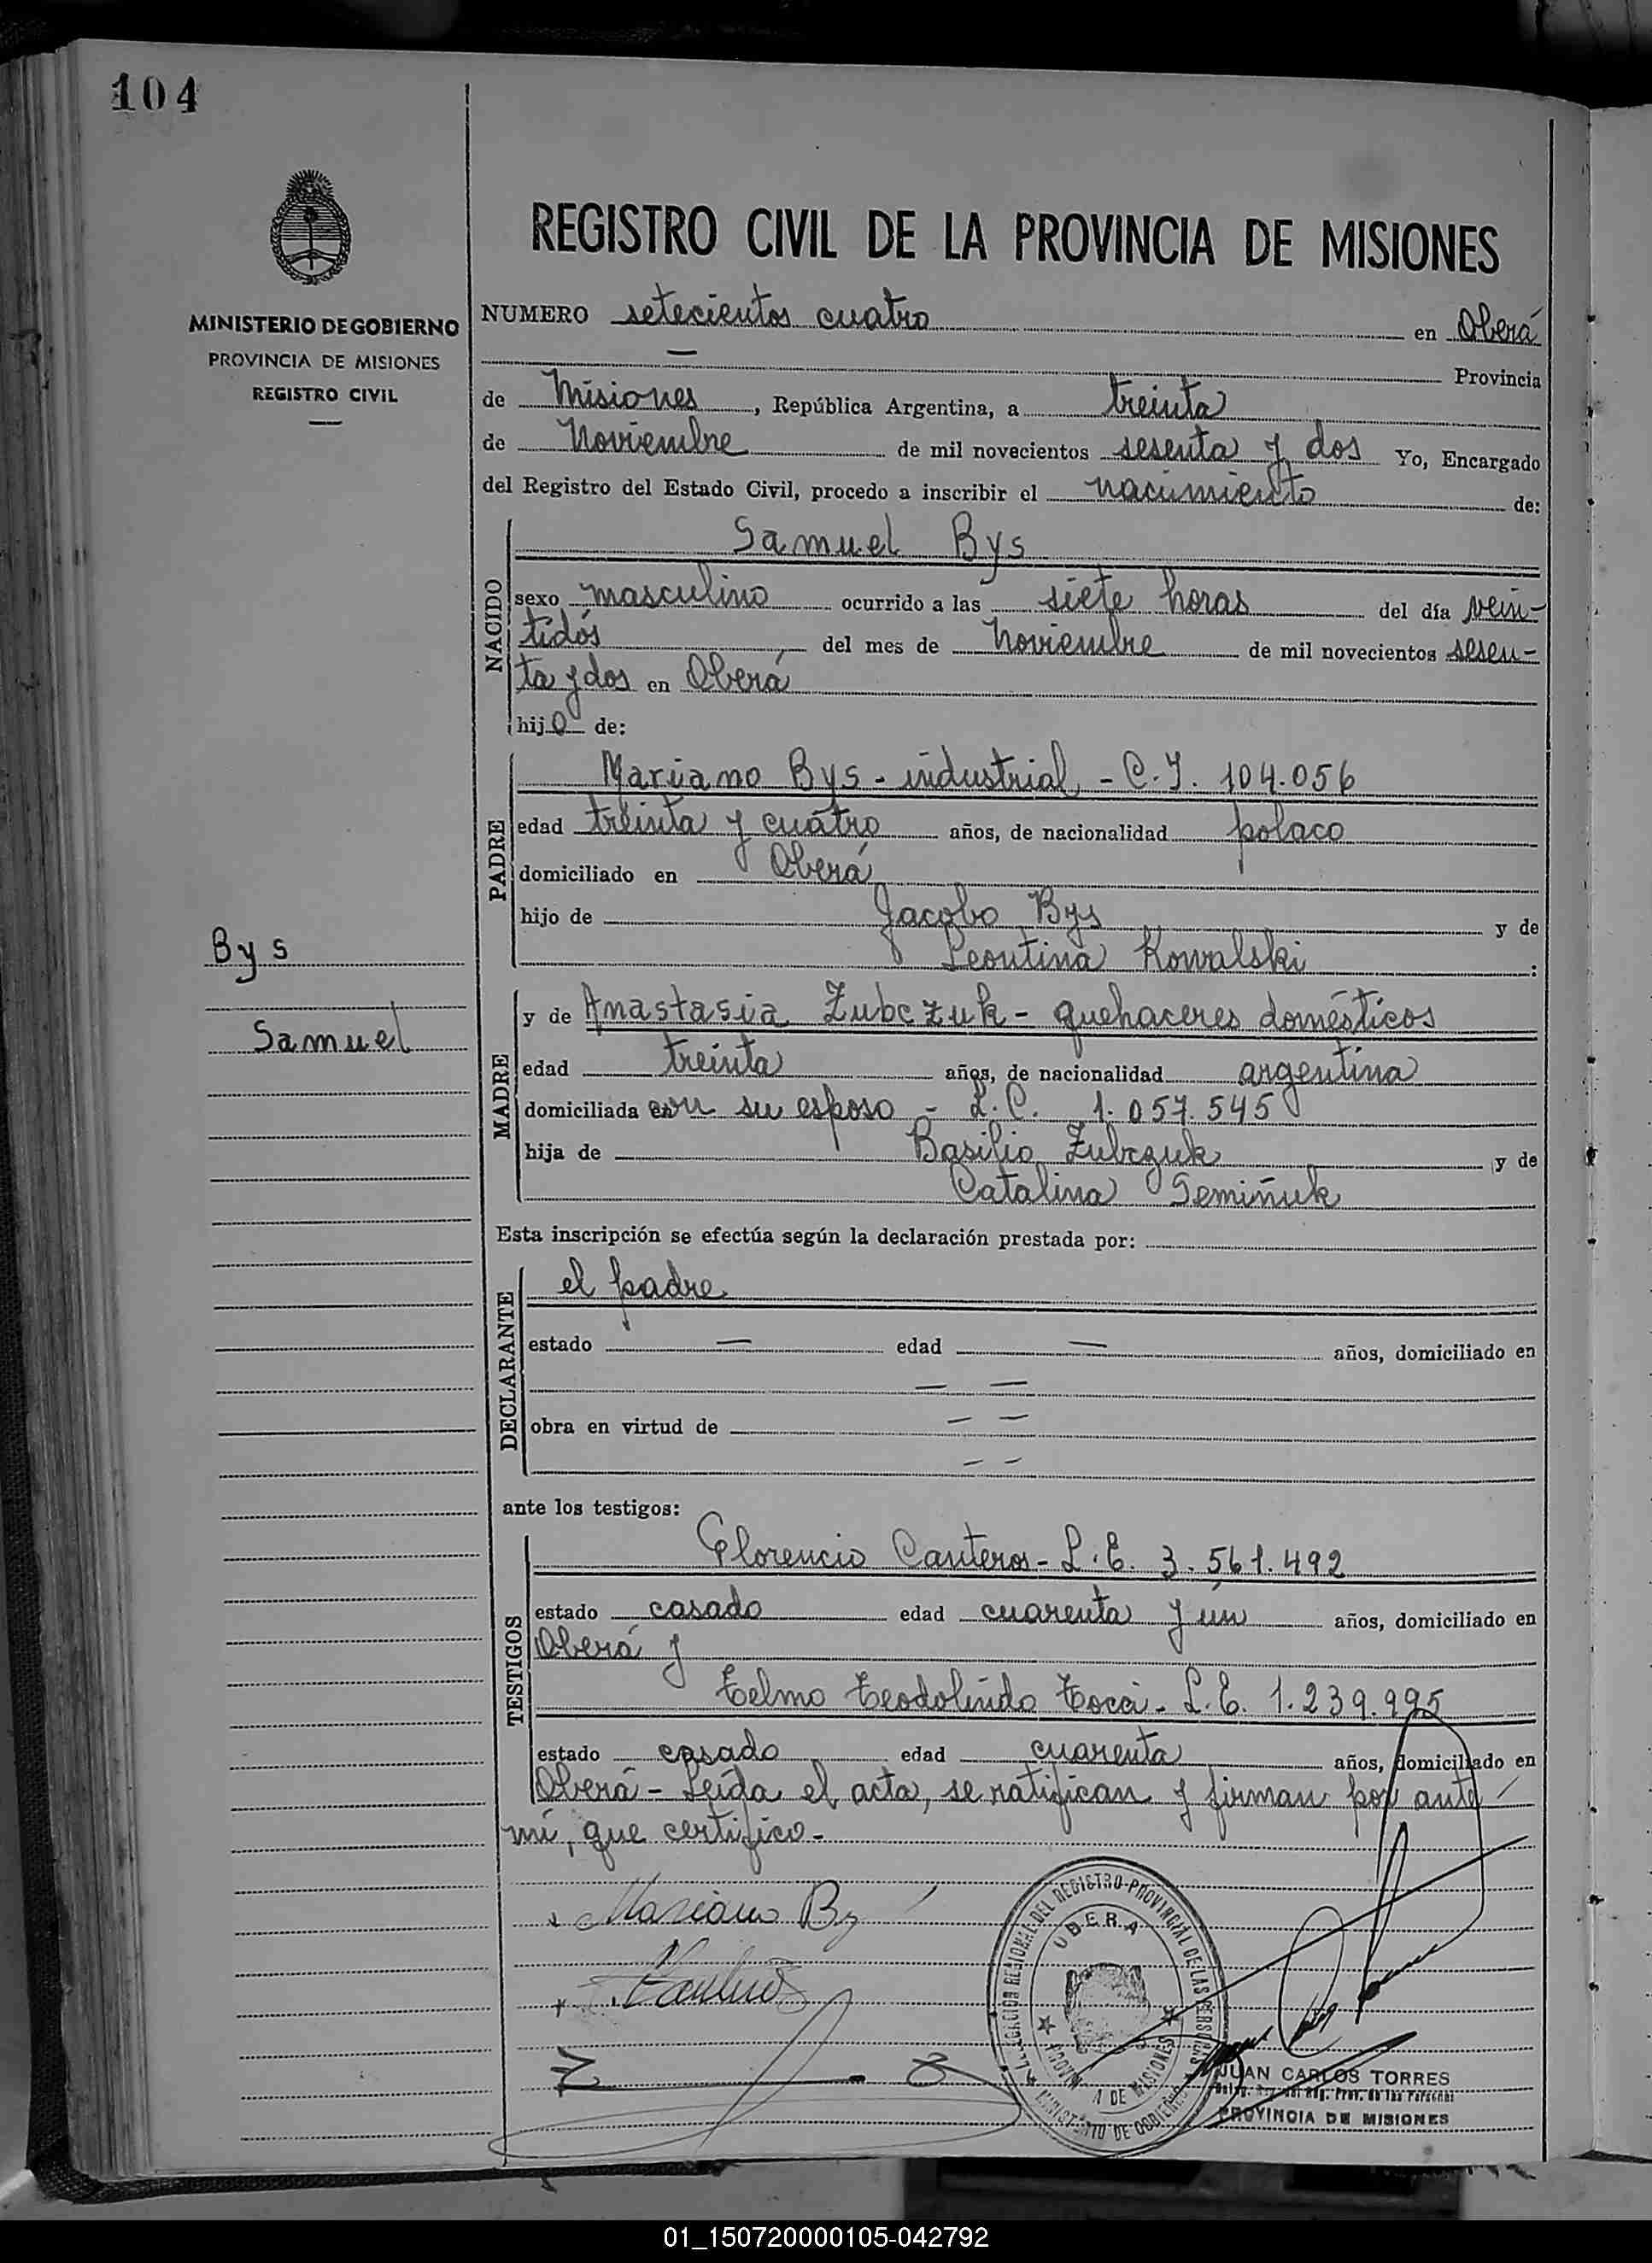 104
REGISTRO CIVIL DE LA PROVINCIA DE MISIONES
MINISTERIO DE GOBIERNO
PROVINCIA DE MISIONES
REGISTRO CIVIL
NUMERO setecientos cuatro en Oberá
— Provincia
de Misiones, República Argentina, a treinta
de Noviembre de mil novecientos sesenta y dos Yo, Encargado
del Registro del Estado Civil, procedo a inscribir el nacimiento de:
NACIDO
Samuel Bys
sexo masculino ocurrido a las siete horas del día vein-
tidós del mes de Noviembre de mil novecientos sesen-
ta y dos en Oberá
hijo de:
PADRE
Mariano Bys - industrial - C.I. 104.056
edad treinta y cuatro años, de nacionalidad polaco
domiciliado en Oberá
hijo de Jacobo Bys y de
Leontina Kowalski :
Bys
Samuel
MADRE
y de Anastasia Zubczuk - quehaceres domésticos
edad treinta años, de nacionalidad argentina
domiciliada con su esposo - L.C. 1.057.545
hija de Basilio Zubczuk y de
Catalina Semiñuk
Esta inscripción se efectúa según la declaración prestada por:
DECLARANTE
el padre
estado — edad — años, domiciliado en
— —
obra en virtud de — —
— —
ante los testigos:
TESTIGOS
Florencio Canteros - L.E. 3.561.492
estado casado edad cuarenta y un años, domiciliado en
Oberá y
Telmo Teodolindo Toca - L.E. 1.239.995
estado casado edad cuarenta años, domiciliado en
Oberá - Leída el acta, se ratifican y firman por ante
mí, que certifico -
Mariano Bys
DELEGACION REGIONAL DEL REGISTRO PROVINCIAL DE LAS PERSONAS
OBERA
MINISTERIO DE GOBIERNO
JUAN CARLOS TORRES
PROVINCIA DE MISIONES
01_150720000105-042792